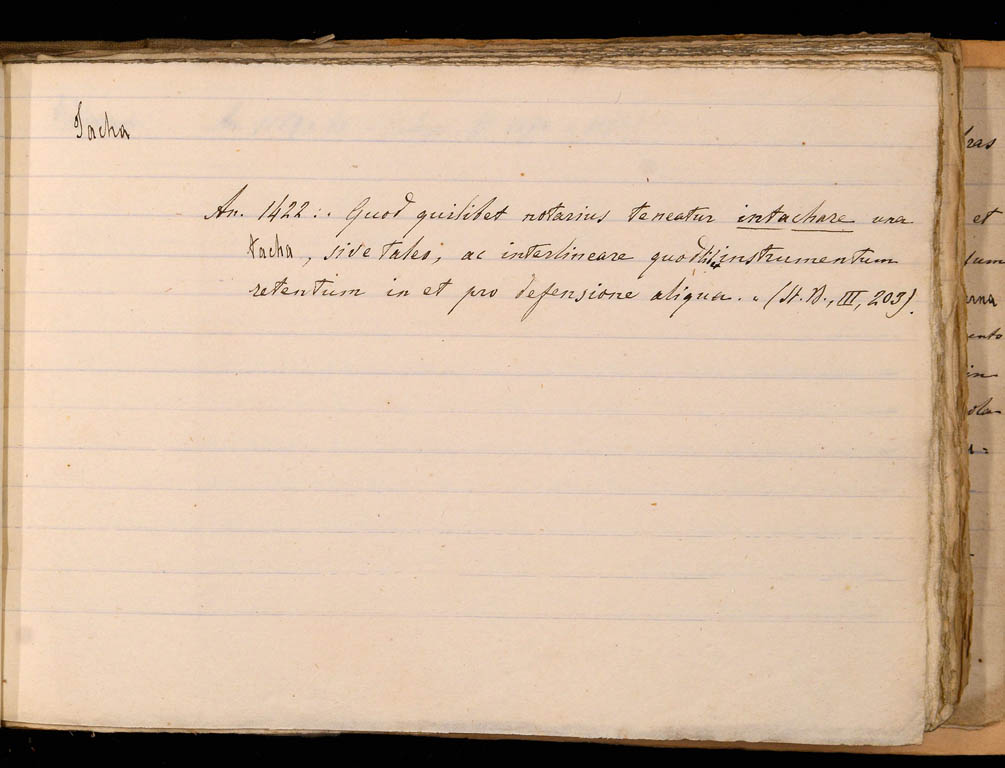 Tacha
An. 1422: "Quod quilibet notarius teneatur intachare una
tacha, sive talea, ac interlineare quodlibet instrumentum
retentum in et pro defensione aliqua." (St. B., III, 203).
ras
et
tum
erna
ento
in
ola